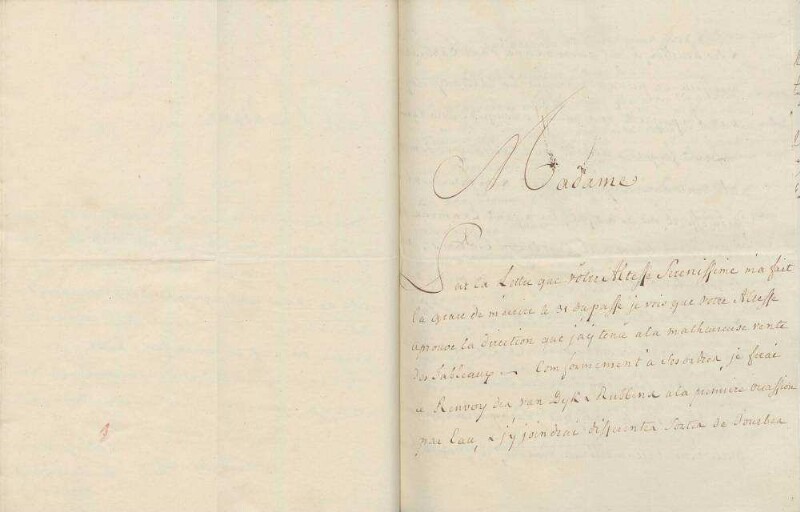 Madame
Par la Lettre que vôtre Altesse Serenissime m'a fait
la grace de m'ecrire le 31 du passé je vois que votre Altesse
aprouve la direction que j'ay tenüe a la malheureuse vente
des Tableaux. Conformement a Ses ordres, je ferai
le Renvoy des van Dyk & Rubbens a la premiere occassion
par Eau, & j'y joindrai differentes Sortes de